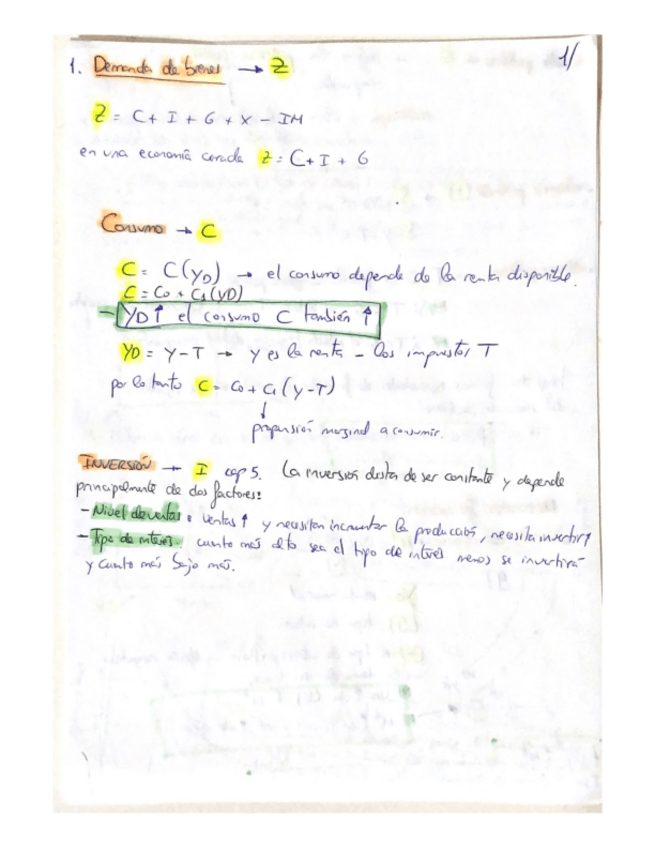 1/
1. Demanda de bienes → Z
Z = C + I + G + X - IM
en una economía cerrada Z = C + I + G
Consumo → C
C = C(YD) → el consumo depende de la renta disponible.
C = C0 + C1(YD)
- YD ↑ el consumo C también ↑
YD = Y - T → Y es la renta - los impuestos T
por lo tanto C = C0 + C1 (Y - T)
↓
propensión marginal a consumir.
INVERSIÓN → I cap 5. La inversión dista de ser constante y depende
principalmente de dos factores:
- Nivel de ventas: ventas ↑ y necesitan incrementar la producción, necesita invertir ↑
- Tipo de interés. cuanto más alto sea el tipo de interés menos se invertirá
y cuanto más bajo más.